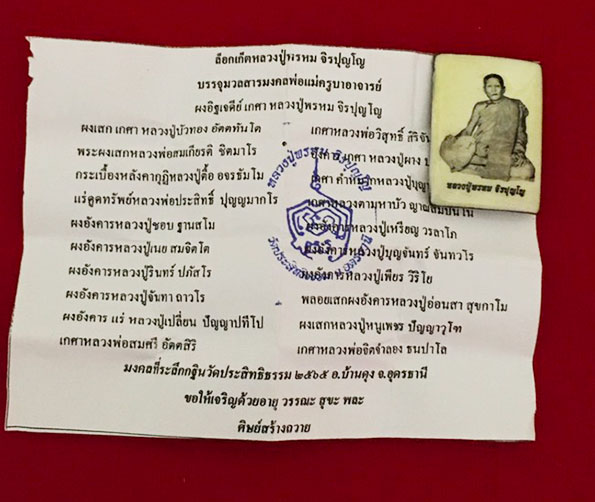 ล็อกเก็ตหลวงปู่พรหม จิรปุญโญ
บรรจุมวลสารมงคลพ่อแม่ครูบาอาจารย์
ผงอิฐเจดีย์ เกศา หลวงปู่พรหม จิรปุญโญ
ผงเสก เกศา หลวงปู่บัวทอง อัตตทันโต
เกศาหลวงพ่อวิสุทธิ์ สิริจัน
พระผงเสกหลวงพ่อสมเกียรติ ชิตมาโร
เกศา หลวงปู่ผาง
กระเบื้องหลังคากุฏิหลวงปู่ตื้อ อจรธัมโม
เกศา หลวงปู่บุญ
แร่ดูดทรัพย์หลวงพ่อประสิทธิ์ ปุญญมากโร
เกศาหลวงตามหาบัว ญาณสัมปันโน
ผงอังคารหลวงปู่ชอบ ฐานสโม
ผงอังคารหลวงปู่เหรียญ วรลาโภ
ผงอังคารหลวงปู่เนย สมจิตโต
ผงอังคารหลวงปู่บุญจันทร์ จันทวโร
ผงอังคารหลวงปู่รินทร์ ปภัสโร
ผงอังคารหลวงปู่เพียร วิริโย
ผงอังคารหลวงปู่จันทา ถาวโร
พลอยเสกผงอังคารหลวงปู่อ่อนสา สุขกาโม
ผงอังคาร แร่ หลวงปู่เปลี่ยน ปัญญาปทีโป
ผงเสกหลวงปู่หนูเพชร ปัญญาวุโฑ
เกศาหลวงพ่อสมศรี อัตตสิริ
เกศาหลวงพ่อจิตจำลอง ธนปาโล
มงคลที่ระลึกกฐินวัดประสิทธิธรรม ๒๕๖๕ อ.บ้านดุง จ.อุดรธานี
ขอให้เจริญด้วยอายุ วรรณะ สุขะ พละ
ศิษย์สร้างถวาย
หลวงปู่พรหม จิรปุญโญ
หลวงปู่พรหม จิรปุญโญ